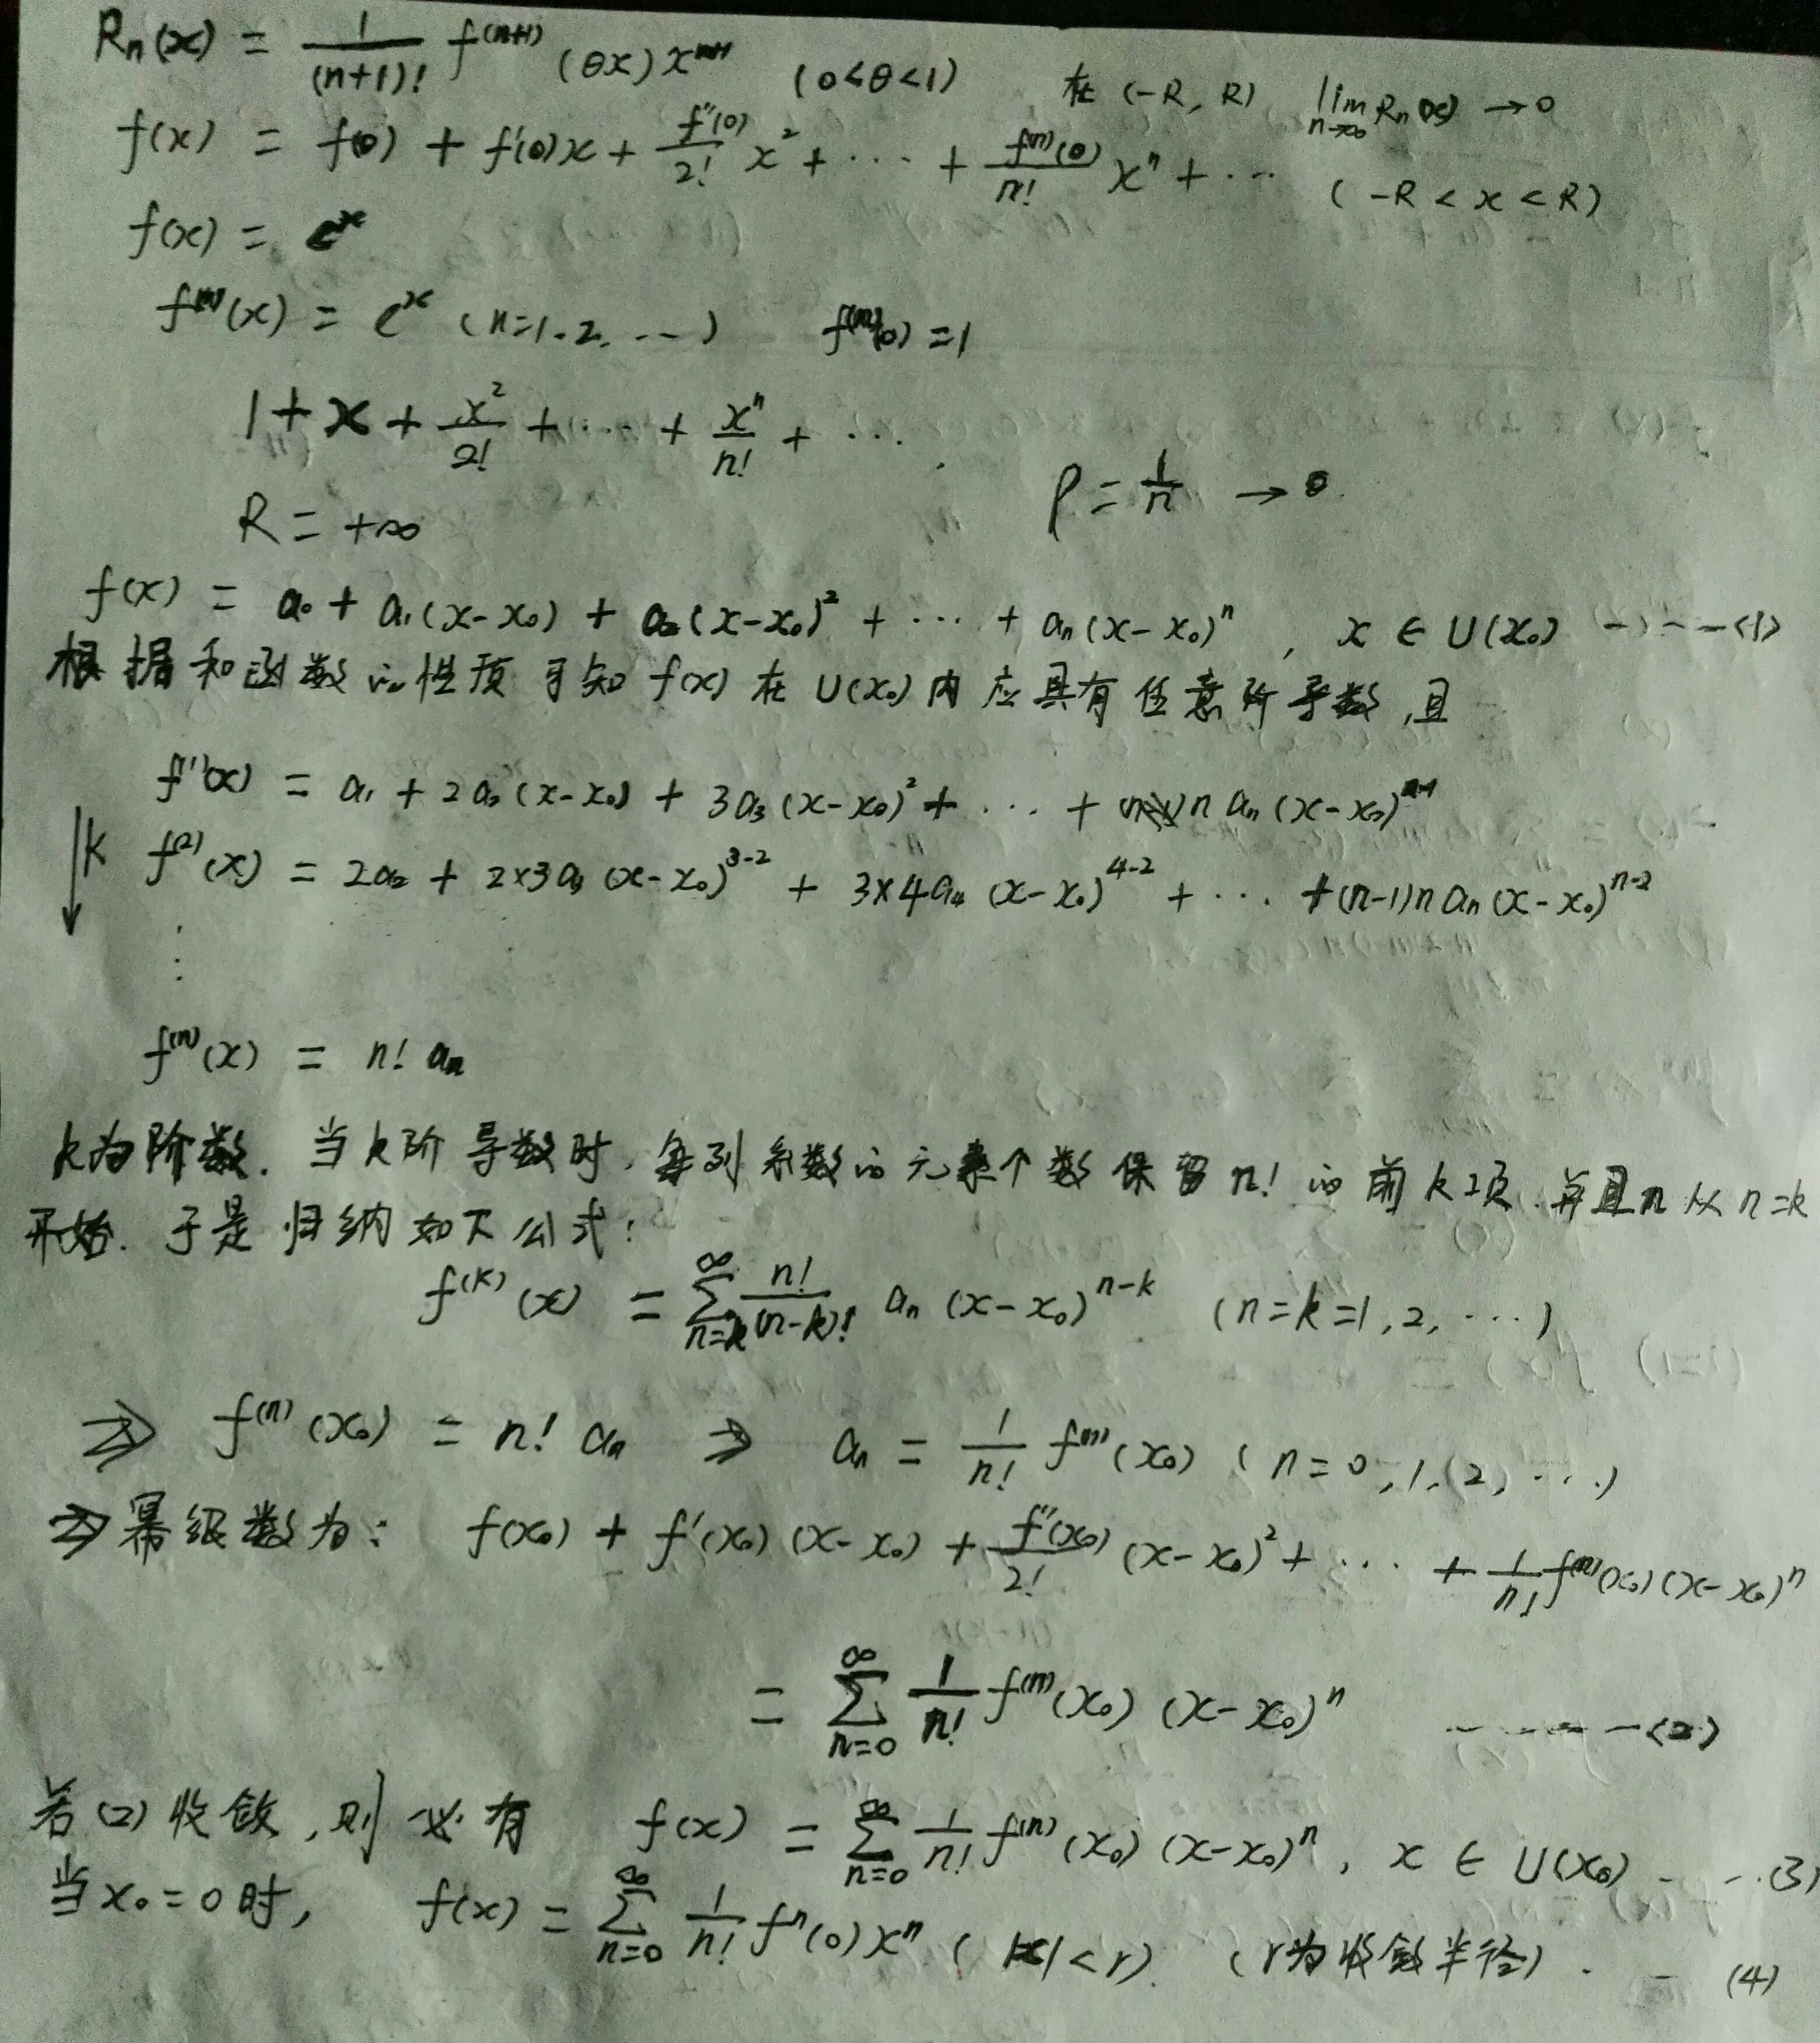 Rn(x) = 1/(n+1)! f^(n+1) (θx) x^(n+1) (0<θ<1) 在 (-R, R) lim n→∞ Rn(x) → 0
f(x) = f(0) + f'(0)x + f''(0)/2! x² + ··· + f^(n)(0)/n! x^n + ··· (-R < x < R)
f(x) = e^x
f^(n)(x) = e^x (n=1.2. ···) f^(n)(0) = 1
1 + x + x²/2! + ··· + x^n/n! + ···
R = +∞ ρ = 1/n → 0
f(x) = a₀ + a₁(x-x₀) + a₂(x-x₀)² + ··· + aₙ(x-x₀)^n , x ∈ U(x₀) ----<1>
根据和函数的性质可知 f(x) 在 U(x₀) 内应具有任意阶导数,且
f^(1)(x) = a₁ + 2a₂(x-x₀) + 3a₃(x-x₀)² + ··· + n aₙ (x-x₀)^(n-1)
↓k f^(2)(x) = 2a₂ + 2×3a₃ (x-x₀)^(3-2) + 3×4a₄ (x-x₀)^(4-2) + ··· + (n-1)n aₙ (x-x₀)^(n-2)
⋮
f^(n)(x) = n! aₙ
k为阶数. 当k阶导数时, 每列系数的元素个数保留 n! 的前k项. 并且n从 n=k
开始. 于是归纳如下公式:
f^(k)(x) = ∑ n=k ∞ n!/(n-k)! aₙ (x-x₀)^(n-k) (n=k=1,2,···)
⇒ f^(n)(x₀) = n! aₙ ⇒ aₙ = 1/n! f^(n)(x₀) (n=0,1,2,···)
⇒ 幂级数为: f(x₀) + f'(x₀)(x-x₀) + f''(x₀)/2! (x-x₀)² + ··· + 1/n! f^(n)(x₀)(x-x₀)^n
= ∑ n=0 ∞ 1/n! f^(n)(x₀) (x-x₀)^n -----(2)
若(2)收敛,则必有 f(x) = ∑ n=0 ∞ 1/n! f^(n)(x₀)(x-x₀)^n, x ∈ U(x₀) - -·(3)
当x₀=0时, f(x) = ∑ n=0 ∞ 1/n! f^n(0)x^n (|x|<r). (r为收敛半径). - (4)